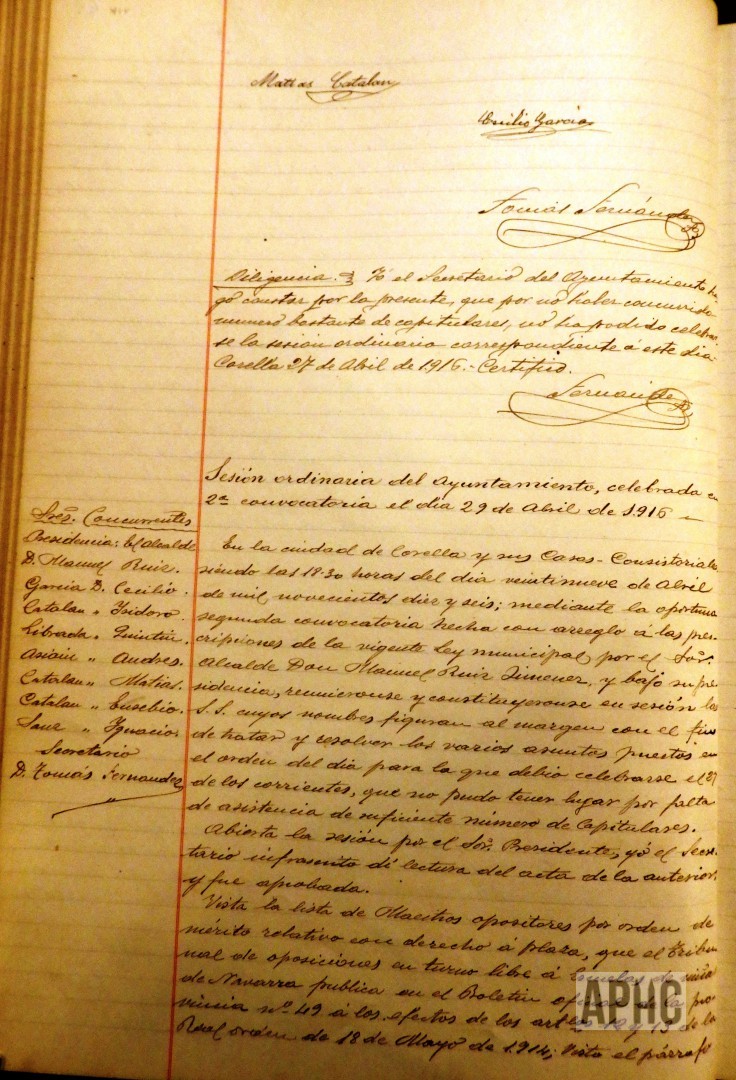 Matias Catalan
Emilio Garcia
Tomás Fernández
Diligencia. Yó el Secretario del Ayuntamiento ha-
gó constar por la presente, que por nó haber concurrido
numeró bastante de capitulares, nó ha podido celebrar
se la sesión ordinaria correspondiente á este dia
Corella 27 de Abril de 1.916.- Certifico.
Fernández
Sesión ordinaria del Ayuntamiento, celebrada en
2ª convocatoria el dia 29 de Abril de 1.916
Sres. Concurrentes
Presidencia: El Alcalde
D. Manuel Ruiz.
Garcia D. Cecilio.
Catalan " Ysidoro.
Librada. Quintin.
Asiain " Andres.
Catalan " Matias.
Catalan " Eusebio.
Sanz " Ygnacio.
Secretario
D. Tomás Fernandez
En la ciudad de Corella y sus Casas-Consistoriales
siendo las 18'30 horas del dia veintinueve de Abril
de mil novecientos diez y seis; mediante la oportuna
segunda convocatoria hecha con arreglo á las pres-
cripciones de la vigente Ley municipal, por el Sor.
Alcalde Don Manuel Ruiz Jimenez, y bajo su pre
sidencia, reunieronse y constituyeronse en sesión los
S.S. cuyos nombres figuran al margen con el fin
de tratar y resolver los varios asuntos puestos en
el orden del dia para la que debió celebrarse el 27
de los corrientes, que no pudo tener lugar por falta
de asistencia de suficiente número de Capitulares.
Abierta la sesión por el Sor. Presidente, yó el Secre-
tario infrascrito di lectura del acta de la anterior,
y fue aprobada.
Vista la lista de Maestros opositores por orden de
mérito relativo con derecho á plaza, que el Tribu
nal de oposiciones en turno libre á Escuelas de niños
de Navarra publica en el Boletin oficial de la pro
vincia nº 49 á los efectos de los arts. 12 y 13 de la
Real orden de 18 de Mayo de 1.914; Visto el párrafo
APHC